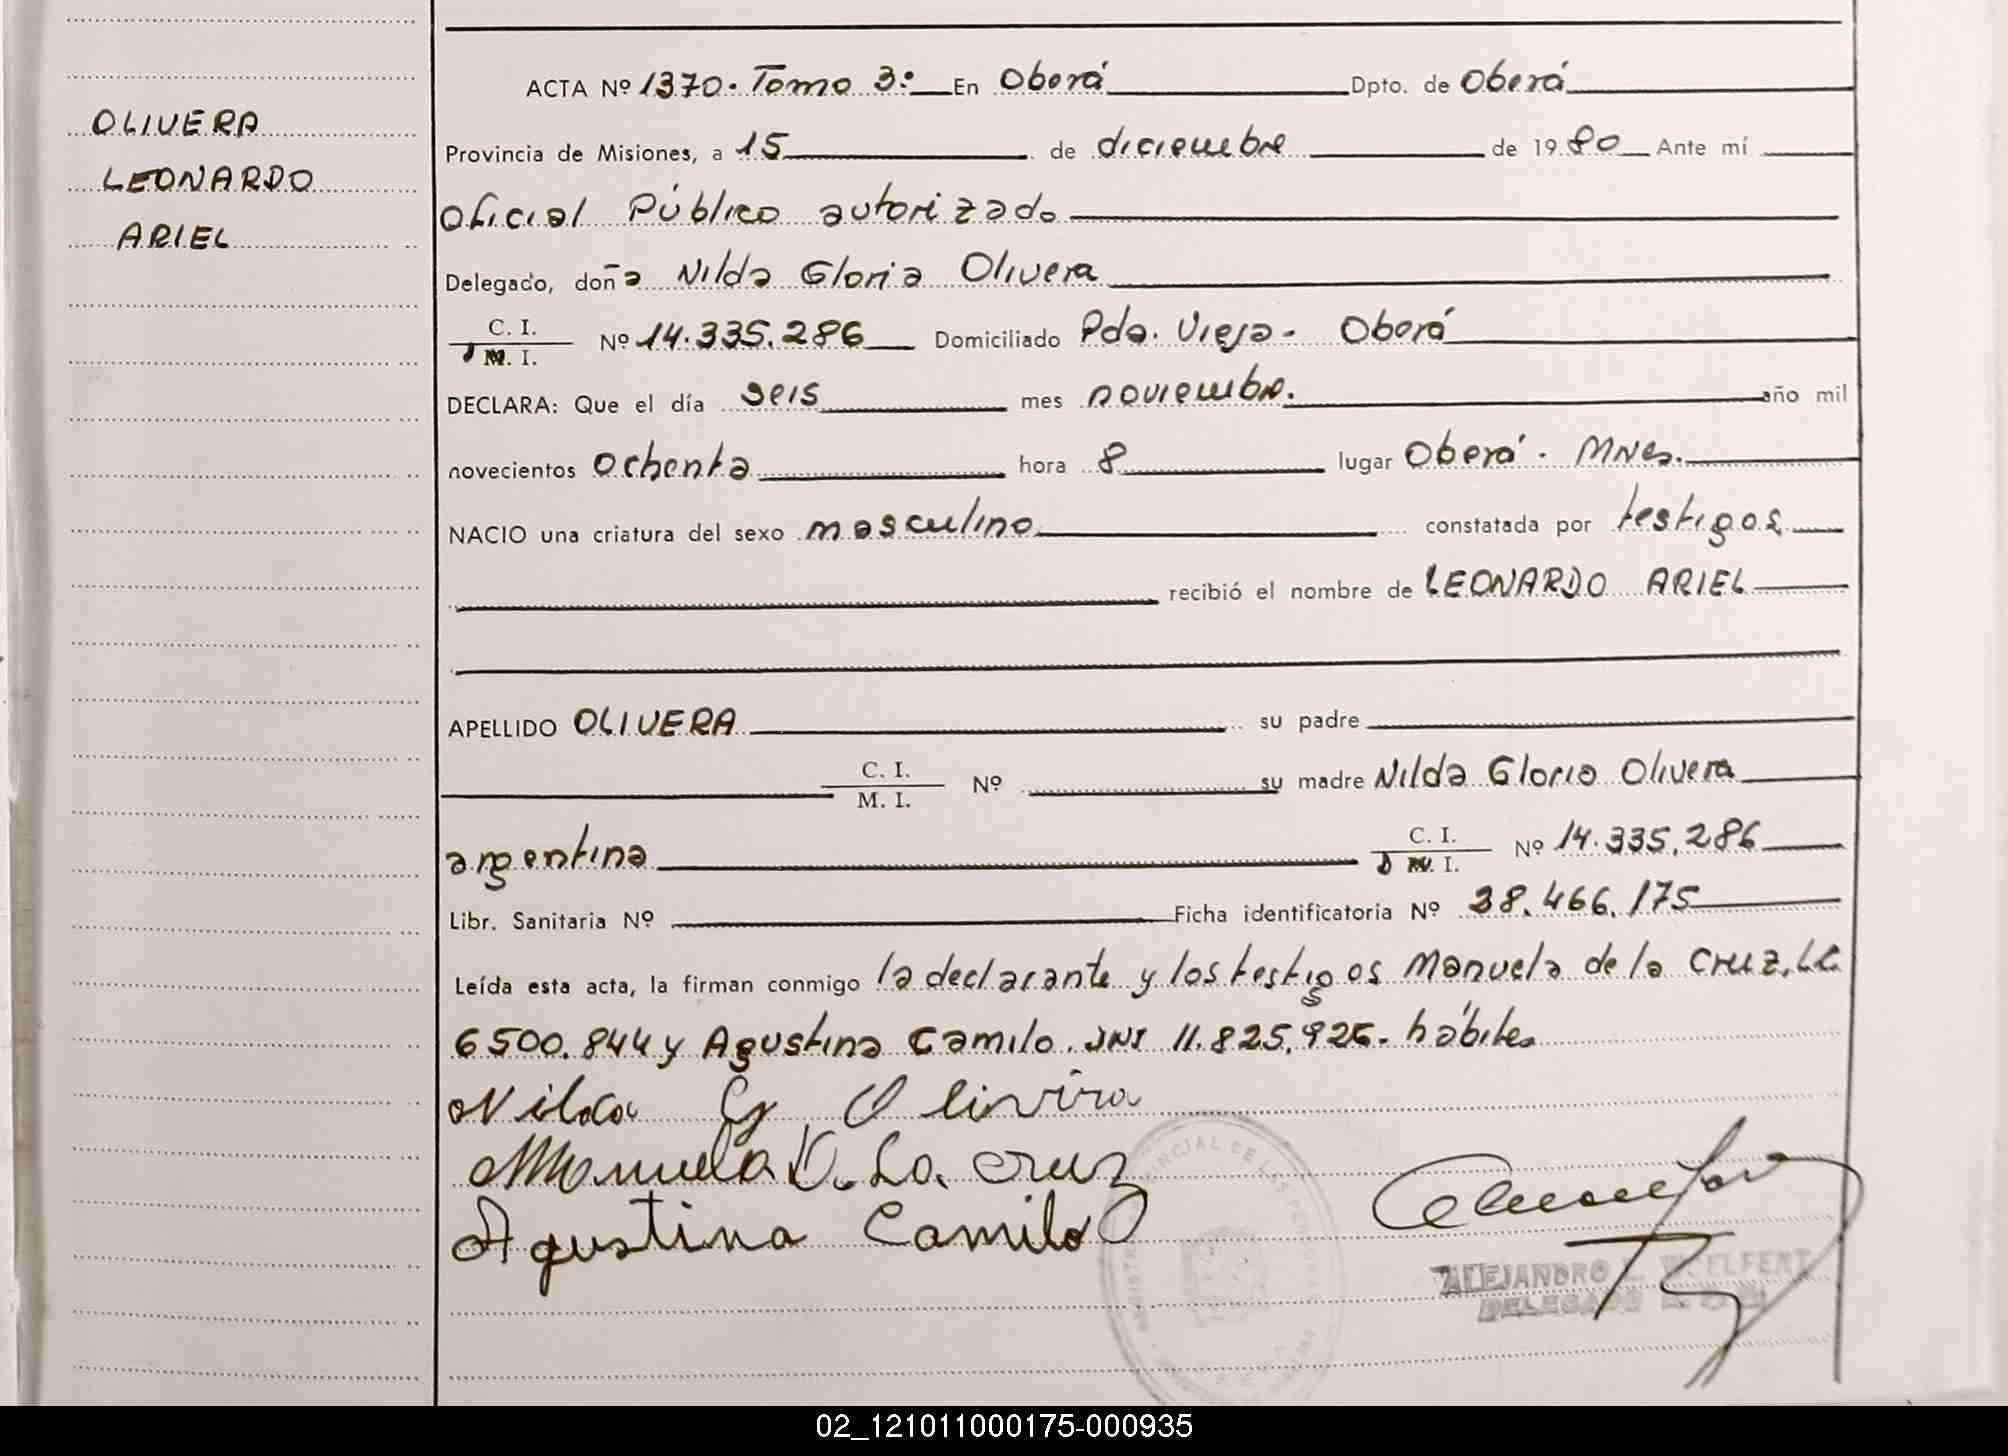 OLIVERA
LEONARDO
ARIEL
ACTA Nº 1370. Tomo 3º En Oberá Dpto. de Oberá
Provincia de Misiones, a 15 de diciembre de 1980 Ante mí
Oficial Público autorizado
Delegado, doña Nilda Gloria Olivera
C. I.
M. I. Nº 14.335.286 Domiciliado Pda. Vieja - Oberá
DECLARA: Que el día seis mes noviembre. año mil
novecientos ochenta hora 8 lugar Oberá. Mnes.
NACIO una criatura del sexo masculino constatada por testigos
recibió el nombre de LEONARDO ARIEL
APELLIDO OLIVERA su padre
C. I.
M. I. Nº su madre Nilda Gloria Olivera
argentina C. I.
M. I. Nº 14.335.286
Libr. Sanitaria Nº Ficha identificatoria Nº 28.466.175
Leída esta acta, la firman conmigo la declarante y los testigos Manuela de la Cruz, LC.
6500.844 y Agustina Camilo. DNI 11.825.926. hábiles
Nilda G Olivira
Manuela D. La. cruz
Agustina Camilo
ALEJANDRO
DELEGADO
02_121011000175-000935